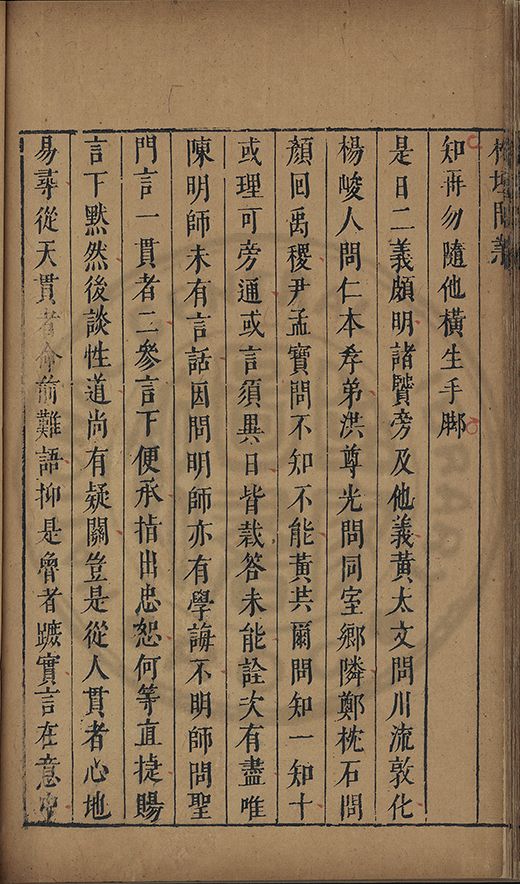 榕壇問業
知再勿隨他橫生手脚
是日二義頗明諸賢旁及他義黃太文問川流敦化
楊峻人問仁本孝弟洪尊光問同室鄉隣鄭枕石問
顏回禹稷尹孟寶問不知不能黃共爾問知一知十
或理可旁通或言須異日皆栽答未能詮次有盡唯
陳明師未有言話因問明師亦有學誨不明師問聖
門言一貫者二參言下便承指出忠恕何等直捷賜
言下黙然後談性道尚有疑關豈是從人貫者心地
易尋從天貫者命前難語抑是魯者蹠實言在意中